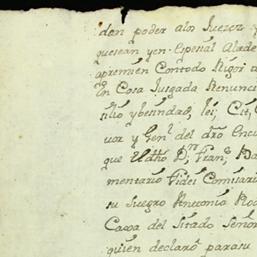 dan poder alos Juezes y
quesean yen Espesial Alade
apremien Contodo Rigor d
En Cosa Jusgada Renunci
silio ybesindad, lei, Cit,
vor y Gen.l del dro En cu
que Udho D.n Fran.co
mentario Fidei Comisari
su suegro Antonio Ro
Casa del Sitado Señor
quien declaró para su